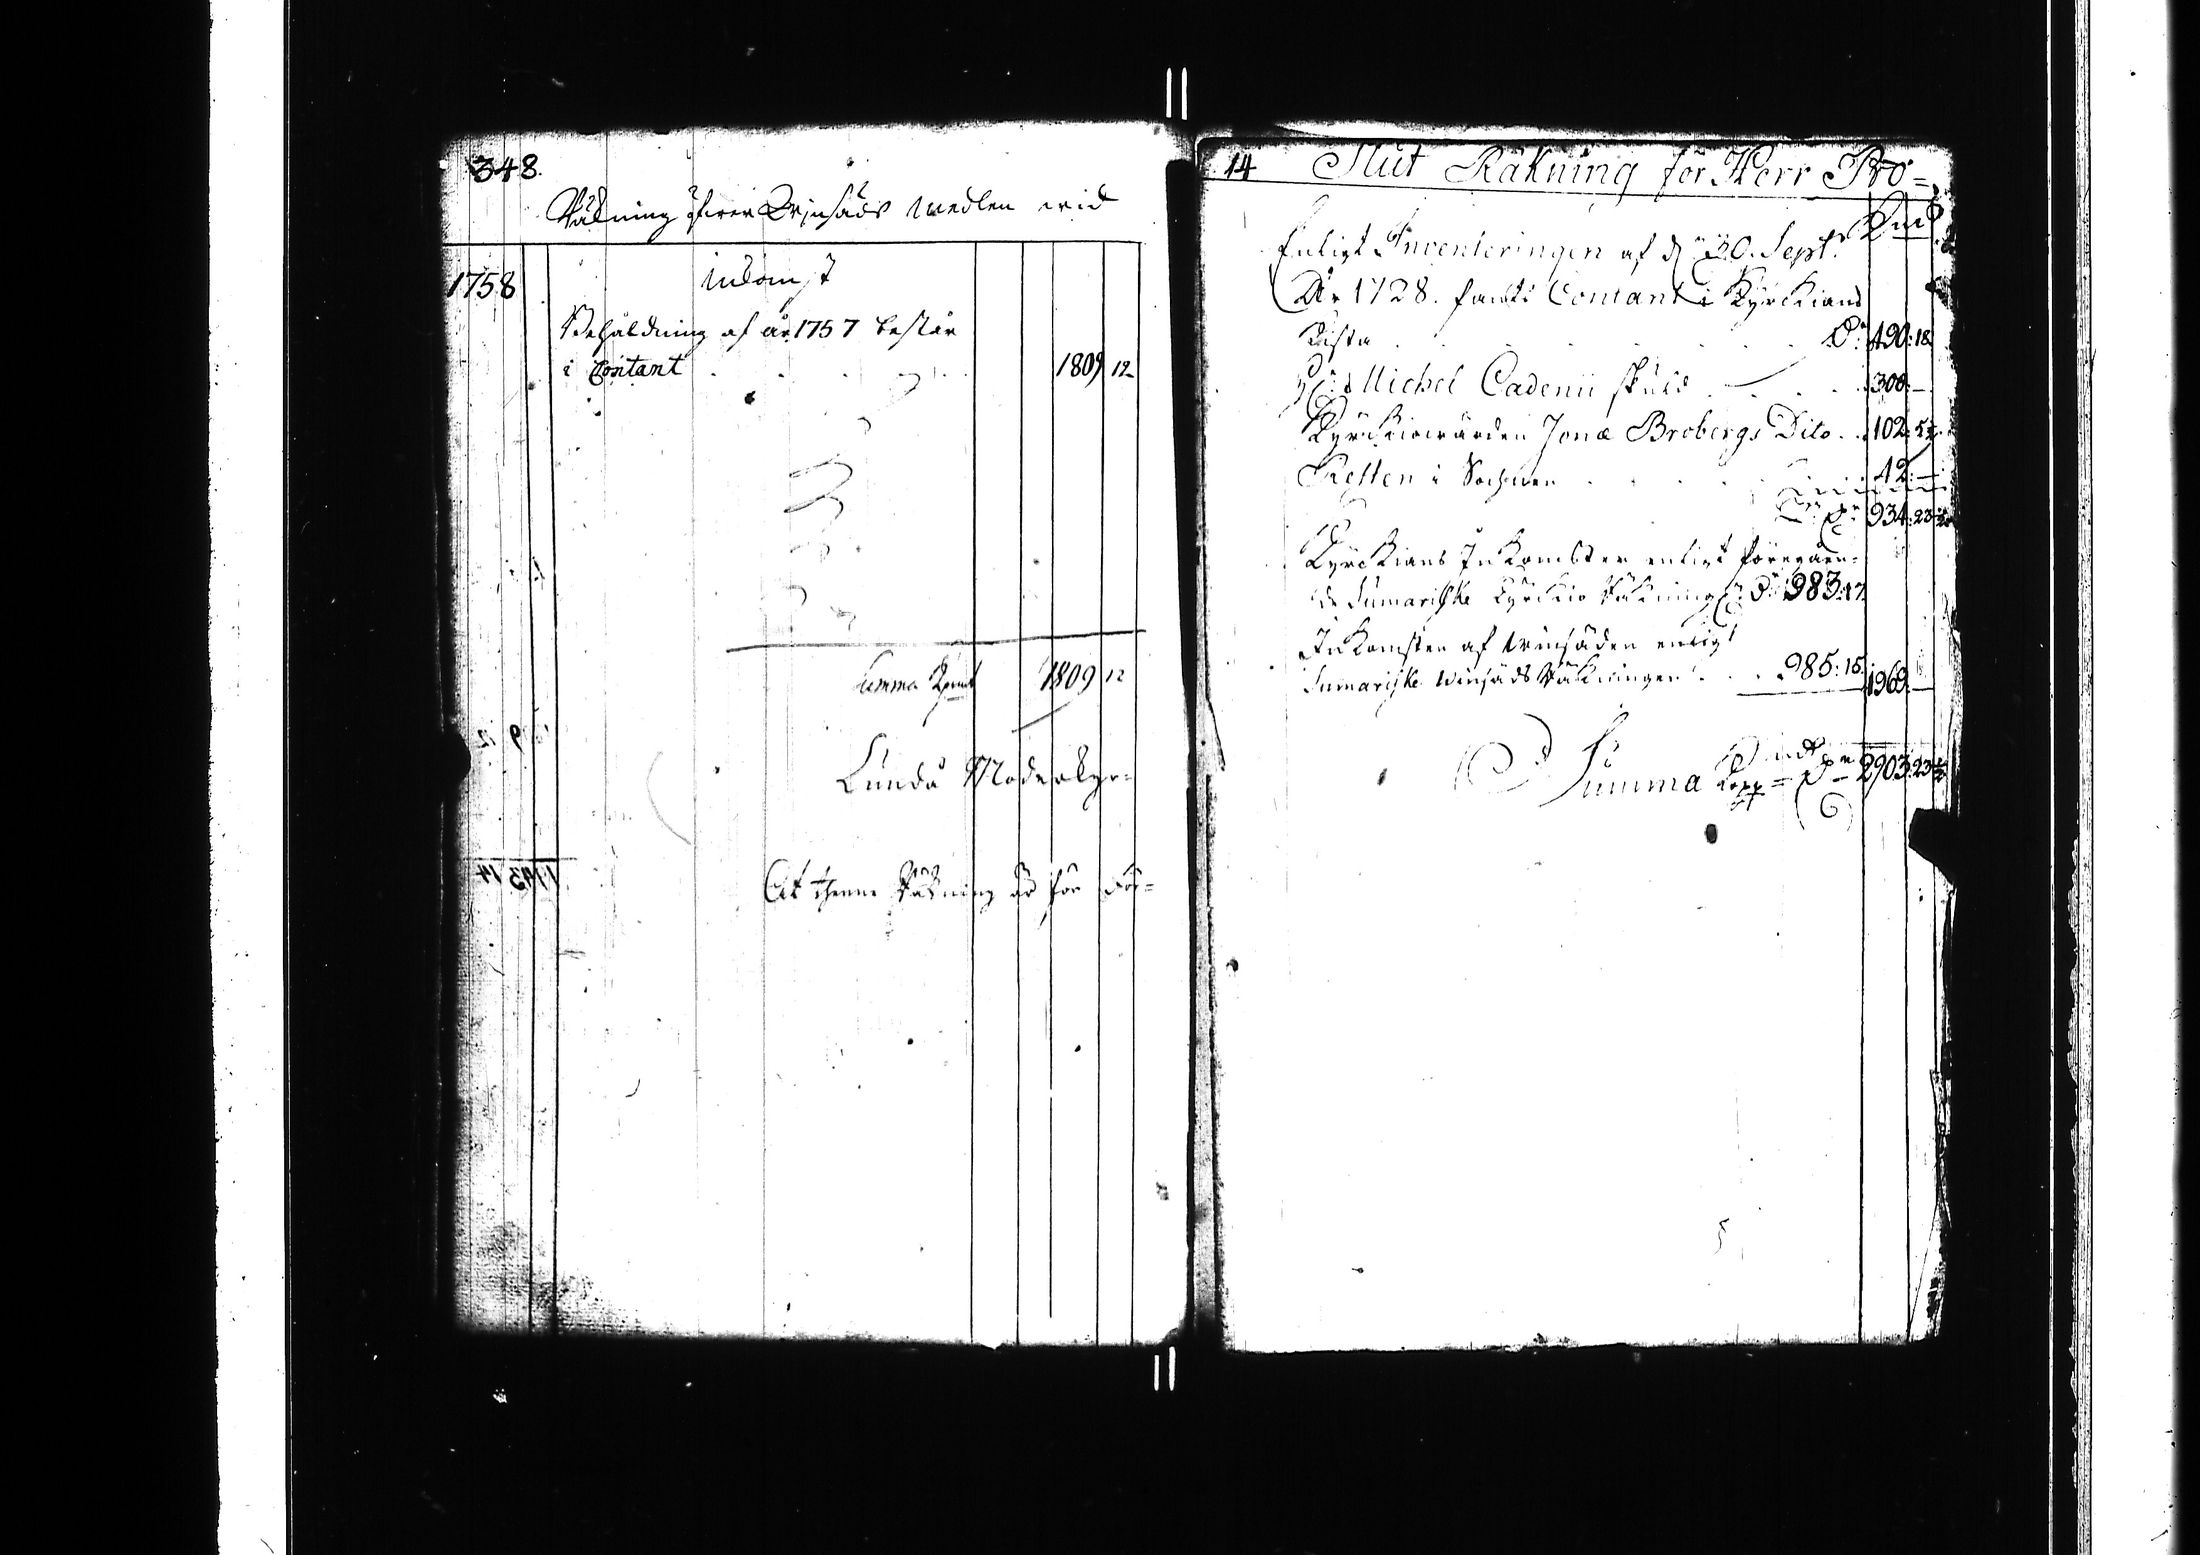 348.
Räkning öfwer Winsäds medlen wid
1758
Inkomst
Behåldning af år 1757 består
i Contant . . . . . 1809 12
Summa Kpmt 1809 12
Lunda Moderkyr=
At thenne Räkning är för För=
14 Slut Räkning för Herr Pro=
Enligt Inventeringen af d. 30. Sept.
År 1728. fants Contant i Kyrckians
Kista . . . . . D. 490:18
Michel Cadenii skuld . . . 300. —
Kyrckiowärden Jonæ Brobergs Dito . . 102: 5½
Resten i Sochnen . . . . 42: —
934: 23½
Kyrckians Inkomster enligt föregåen=
de Sumariske Kyrckio Räkning D. 983:17
Inkomsten af Winsäden enligt
Sumariske Winsäds Räkningen . . . 985:15 1969. —
Summa Kopp= 2903:23½